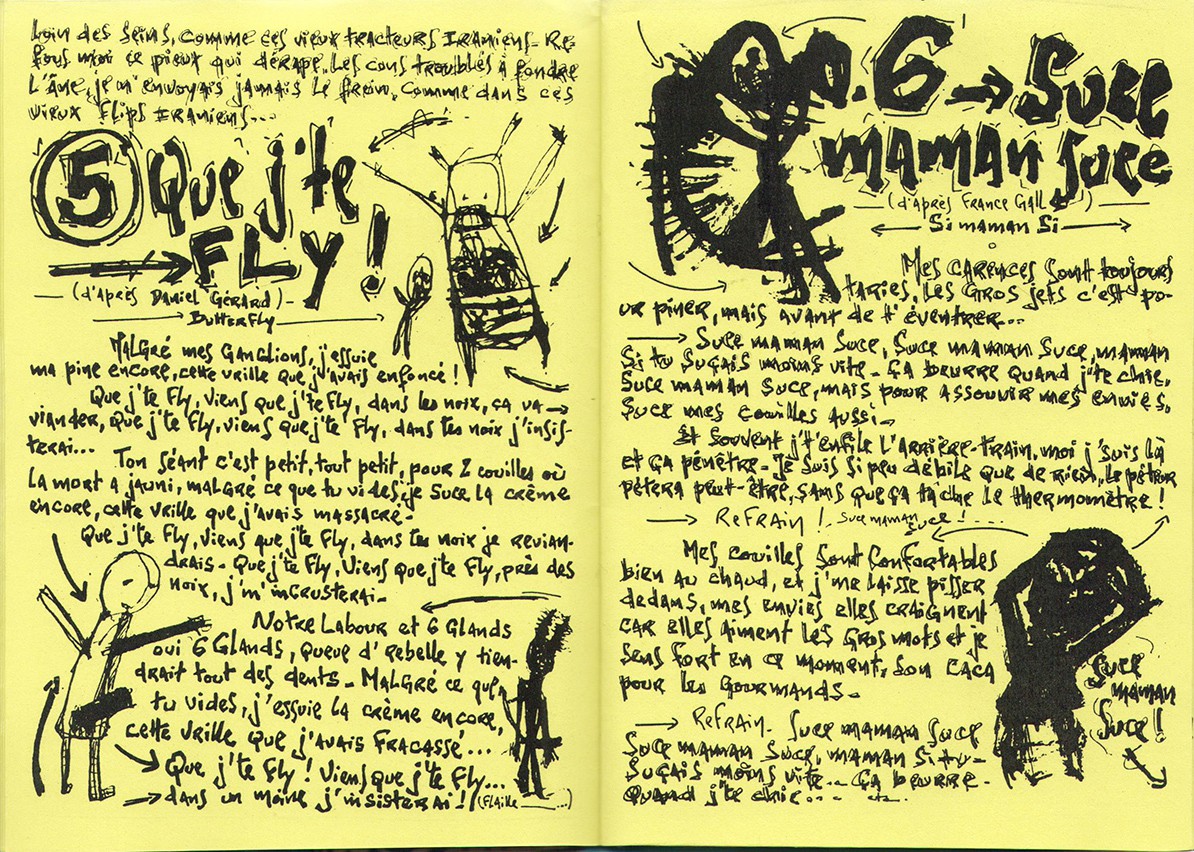 Loin des seins, comme ces vieux tracteurs Iraniens- Re
fous moi ce pieux qui dérape, Les cons troublés à fondre
L'Âne, je n'envoyais jamais le frein, comme dans ces
vieux flips Iraniens...
5 Que j'te
FLY!
(d'après Daniel Gérard)
Butterfly
Malgré mes Ganglions, j'essuie
ma pine encore, cette vrille que j'avais enfoncé!
Que j'te fly, viens que j'te fly, dans les noix, ça va
viander, que j'te fly, viens que j'te fly, dans tes noix j'insis-
terai...
Ton séant c'est petit, tout petit, pour 2 couilles où
la mort a jauni, malgré ce que tu vides, je suce la crème
encore, cette vrille que j'avais massacré-
Que j'te fly, viens que j'te fly, dans tes noix je revian-
drais- Que j'te fly, viens que j'te fly, près des
noix, j'm'incrusterai-
Notre Labour et 6 Glands
oui 6 Glands, queue d'rebelle y tien-
drait tout des dents- Malgré ce que
tu vides, j'essuie la crème encore,
cette vrille que j'avais fracassé...
Que j'te fly! viens que j'te fly...
dans un moine j'insisterai! (flaille ...)
6 Suce
maman suce
(d'après France Gall)
Si maman Si
Mes carences sont toujours
taries, les gros jets c'est po-
ur piner, mais avant de t'éventrer...
Suce maman suce, Suce maman suce, maman
Si tu suçais moins vite- Ça beurre quand j'te chie,
Suce maman suce, mais pour assouvir mes envies,
Suce mes couilles aussi-
Et souvent j't'enfile l'arrière-train, moi j'suis là
et ça pénètre- Je suis si peu débile que de rien, le péteur
pètera peut-être, sans que ça tache le thermomètre!
Refrain! Suce maman suce!...
Mes couilles sont confortables
bien au chaud, et j'me laisse pisser
dedans, mes envies elles craignent
car elles aiment les gros mots et je
sens fort en ce moment, son caca
pour les gourmands-
Suce
maman
Suce!
Refrain- Suce maman suce
Suce maman suce, maman si tu
suçais moins vite- Ça beurre-
quand j'te chie... etc..